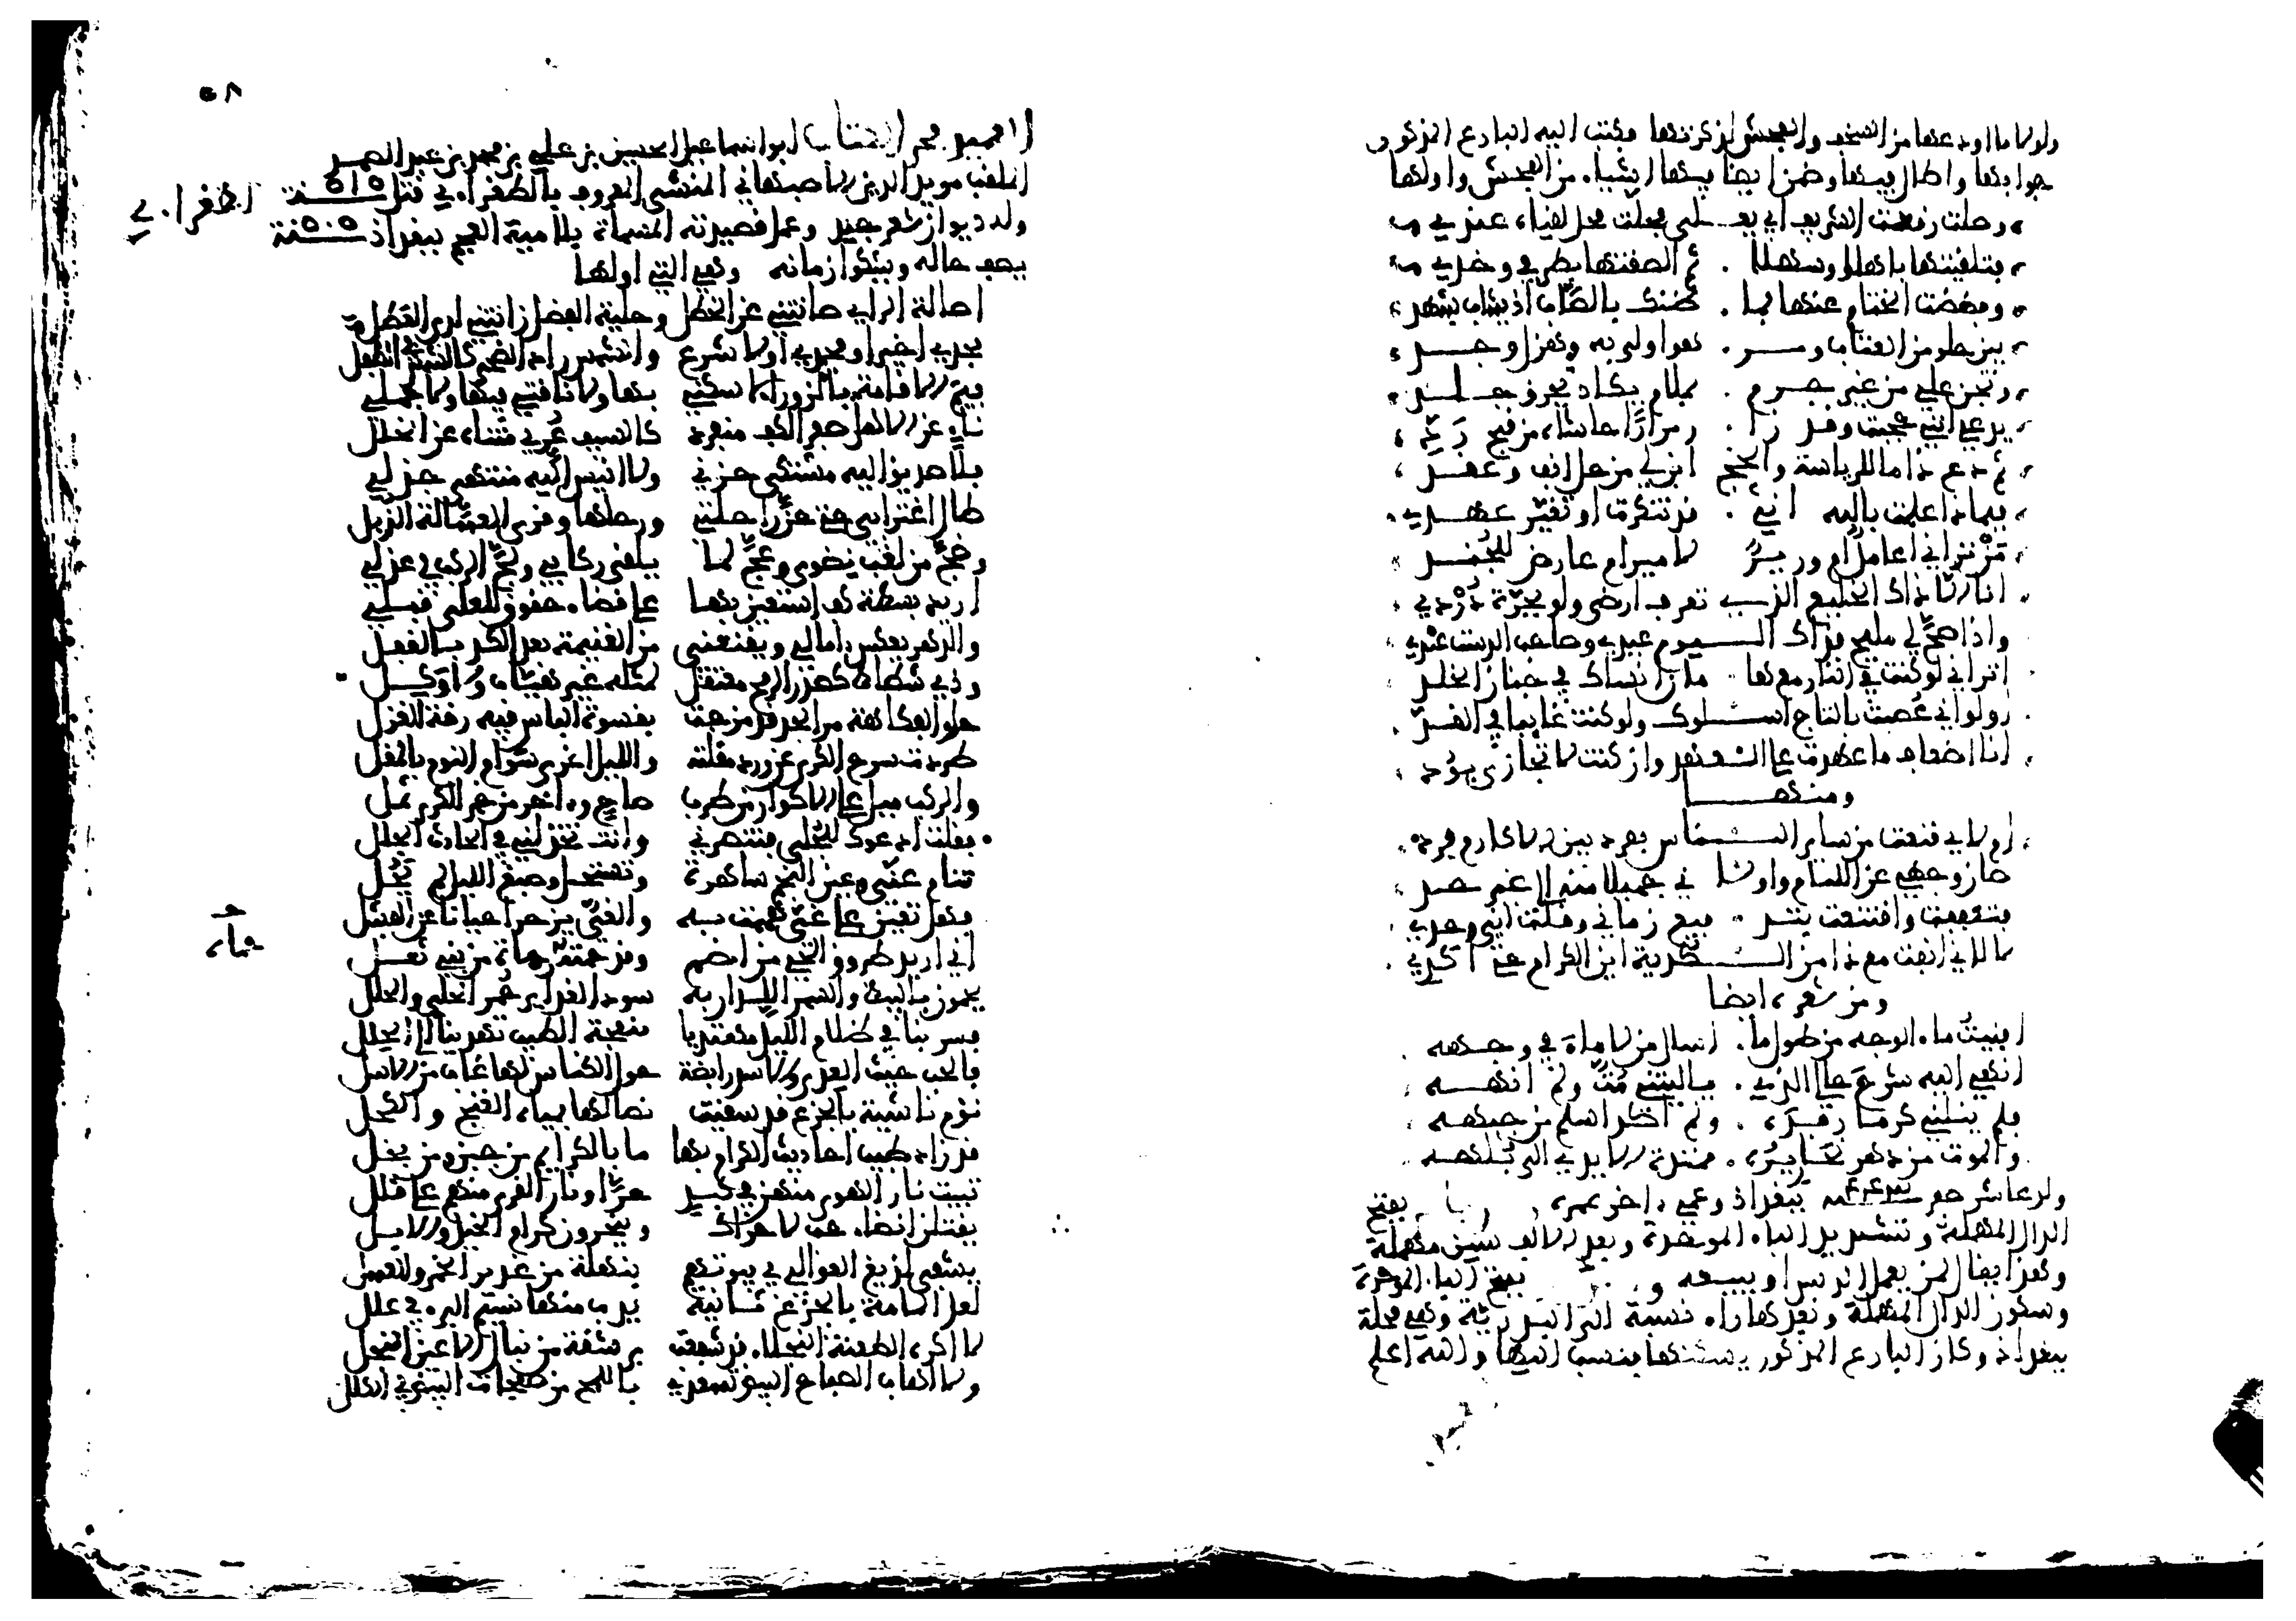 ولولا ما اودعها من السخف والفحش لذكرتها فكتب اليه البارع المذكور
جوابها واطال فيها وضمن ايضا فيها اشياء من الفحش واولها
وصلت رقعت الشريف ابي يعلى فحلت محل لقياه عندي
فتلقيتها باهلا وسهلا ثم الصقتها بطرفي وخدي
وفضضت الختام عنها فما ظنك بالصاب اذ يشاب بشهد
بين حلو من العتاب ومر هو اولى به وهزل وجد
وتجن علي من غير جرم بملام يكاد يحرق جلد
يدعي انني حجبت وقد زا رمرارا حاشاه من قبح رد
ثم دع ذا ما للرياسة والحجب ابن لي من حل انف وعقد
فبماذا علمت بالله اني قد تنكرت او تغير عهدي
من تراني اعامل ام وزير لامير ام عارض للجند
انا الا ذاك الخليع الذي تعرف ارضى ولو بجرة دردي
واذا صح لي مليح فذاك اليوم عيدي وصاحب الدست عبدي
اتراني لو كنت في النار مع ها مان انساك في جنان الخلد
اولو اني عصبت بالتاج اسلوك ولو كنت غايبا في القد
انا اضعاف ما عهدت على العهد وان كنت لا تجازي بود
ومنها
ام لاني قنعت من ساير الناس بفرد بين الاكارم فرد
صان وجهي عن اللئام واولا ني جميلا منه الى غير حد
فتعففت واقتنعت بتد فيع زماني وقلت اني وحدي
لا لاني انفت مع ذا من الكدية اين الكرام حتى اكدي
ومن شعره ايضا
افنيت ماء الوجه من طول ما اسال من لا ماء في وجهه
انهي اليه شرح حالي الذي يا ليتني مت ولم انهه
فلم ينلني كرما رفده ولم اكد اسلم من جبهه
والموت من دهر نحاريره ممتدة الايدي الى بلهه
ولد عاشر صفر سنة ٤٤٣ ببغداذ وعمي ءاخر عمره بفتح
الدال المهملة وتشديد الباء الموحدة وبعد الالف سين مهملة
وهذا يقال لمن يعمل الدبس او يبيعه و بفتح الباء الموحدة
وسكون الدال المهملة وبعدها راء نسبة الى البدرية وهي محلة
ببغداذ وكان البارع المذكور يسكنها فنسب اليها والله اعلم
٥٨
العميد فخر الكتاب ابو اسماعيل الحسين بن علي بن محمد بن عبد الصمد
الملقب مويد الدين الاصبهاني المنشي المعروف بالطغراءي قتل سنة ٥١٥
الطغراءي
وله ديوان شعر جيد وعمل قصيدته المسماة بلامية العجم ببغداذ سنة ٥٠٥
يصف حاله ويشكوا زمانه وهي التي اولها
اصالة الراي صانتني عن الخطل وحلية الفضل زانتني لدى العطل
مجدي اخيرا ومجدي اولا شرع والشمس راد الضحى كالشمس في الطفل
فيم الاقامة بالزوراء لا سكني بها ولا ناقتي فيها ولا جملي
ناء عن الاهل صفر الكف منفرد كالسيف عري متناه عن الخلل
فلا صديق اليه مشتكى حزني ولا انيس اليه منتهى جذلي
طال اغترابي حتى حن راحلتي ورحلها وقرى العسالة الذبل
وضج من لغب نضوي وعج لما يلقى ركابي ولج الركب في عذلي
اريد بسطة كف استعين بها على قضاء حقوق للعلى قبلي
والدهر يعكس ءامالي ويقنعني من الغنيمة بعد الكد بالقفل
وذي شطاط كصدر الرمح معتقل لمثله غير هياب ولا وكل
حلو الفكاهة مر الجد قد مزجت بقسوة الباس فيه رقة الغزل
طردت سرح الكرى عن ورد مقلته والليل اغرى سوام النوم بالمقل
والركب ميل على الاكوار من طرب صاح وءاخر من خمر الكرى ثمل
فقلت ادعوك للجلى فتنصرني وانت تخذلني في الحادث الجلل
تنام عني وعين النجم ساهرة وتستحيل وصبغ الليل لم يحل
فهل تعين على غي هممت به والغي يزجر احيانا عن الفشل
اني اريد طروق الحي من اضم وقد حمته رماة من بني ثعل
حماه
يحمون بالبيض والسمر اللدان به سود الغداير حمر الحلي والحلل
فسر بنا في ظلام الليل مهتديا بنفحة الطيب تهدينا الى الحلل
فالحب حيث العدى والاسد رابضة حول الكناس لها غاب من الاسل
نؤم ناشئة بالجزع قد سقيت نصالها بمياه الغنج والكحل
قد زاد طيب احاديث الكرام بها ما بالكرايم من جبن ومن بخل
تبيت نار الهوى منهن في كبد حرا ونار القرى منهم على قلل
يقتلن انضاء حب لا حراك وينحرون كرام الخيل والابل
يشفى لديغ العوالي في بيوتهم بنهلة من غدير الخمر والعسل
لعل المامة بالجزع ثانية يدب منها نسيم البرء في علل
لا اكره الطعنة النجلاء قد شفعت برشقة من نبال الاعين النجل
ولا اهاب الصفاح البيض تسعدني باللمح من صفحات البيض في الكلل